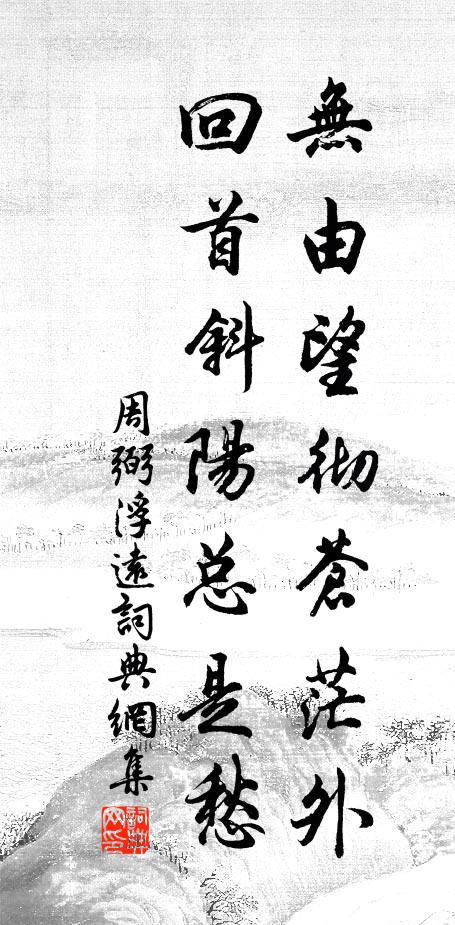 無由望彻蒼茫外
回首斜陽总是愁
周弼浮遠詞典網集
詞典
网印